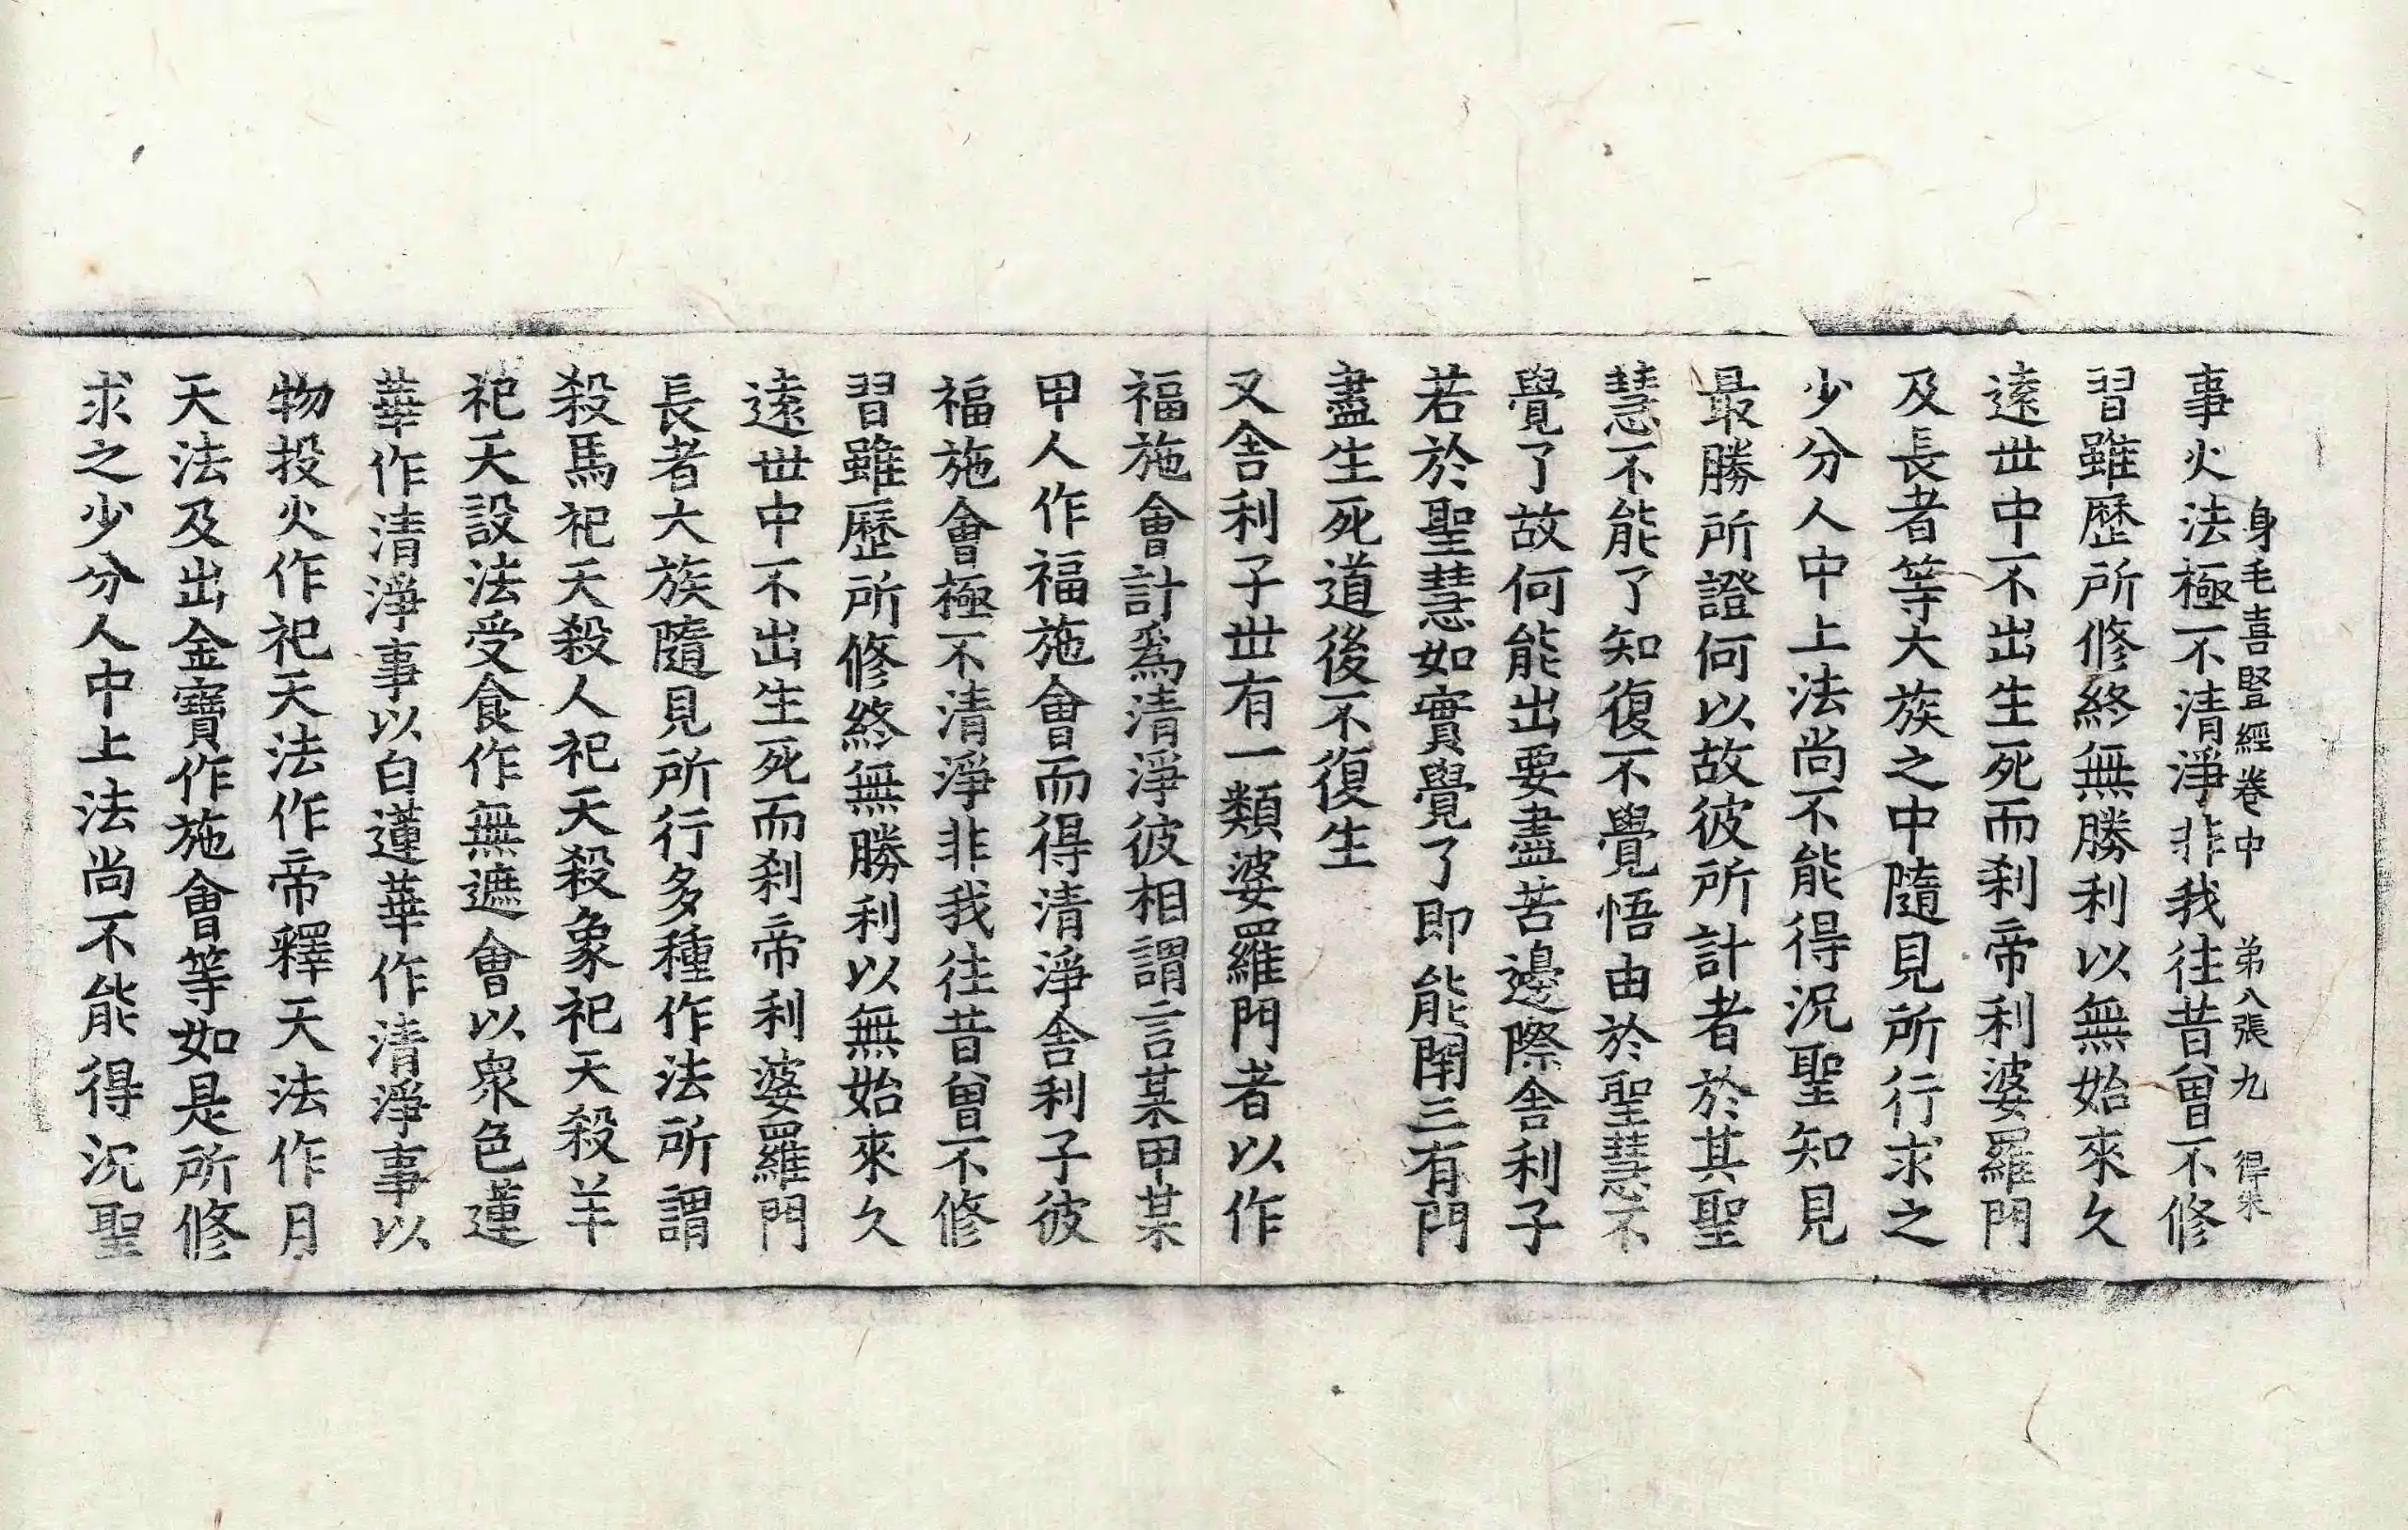 身毛喜豎經卷中　第八張　九　得朱
事火法極不清淨非我往昔曾不修
習雖歷所修終無勝利以無始來久
遠世中不出生死而刹帝利婆羅門
及長者等大族之中隨見所行求之
少分人中上法尚不能得況聖知見
最勝所證何以故彼所計者於其聖
慧不能了知復不覺悟由於聖慧不
覺了故何能出要盡苦邊際舍利子
若於聖慧如實覺了即能閉三有門
盡生死道後不復生
又舍利子世有一類婆羅門者以作
福施會計爲清淨彼相謂言某甲某
甲人作福施會而得清淨舍利子彼
福施會極不清淨非我往昔曾不修
習雖歷所修終無勝利以無始來久
遠世中不出生死而刹帝利婆羅門
長者大族隨見所行多種作法所謂
殺馬祀天殺人祀天殺象祀天殺羊
祀天設法受食作無遮會以衆色蓮
華作清淨事以白蓮華作清淨事以
物投火作祀天法作帝釋天法作月
天法及出金寶作施會等如是所修
求之少分人中上法尚不能得況聖